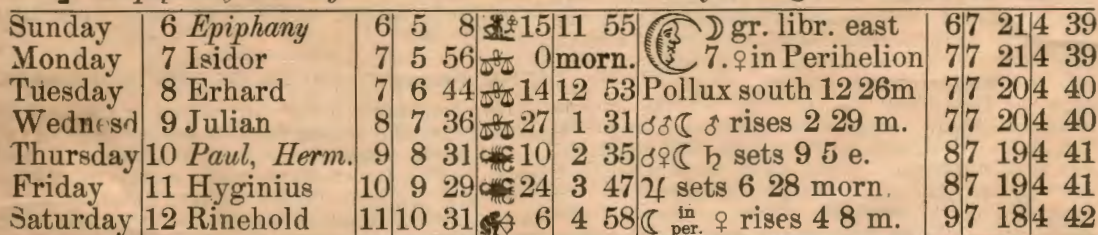 Sunday 6 Epiphany 6 5 8 15 11 55 ☽ gr. libr. east 6 7 21 4 39
Monday 7 Isidor 7 5 56 ♎ 0 morn. 7. ♀ in Perihelion 7 7 21 4 39
Tuesday 8 Erhard 7 6 44 ♎ 14 12 53 Pollux south 12 26m 7 7 20 4 40
Wednesd 9 Julian 8 7 36 ♎ 27 1 31 ☌♂☾ ♂ rises 2 29 m. 7 7 20 4 40
Thursday 10 Paul, Herm. 9 8 31 ♏ 10 2 35 ☌♀☾ ♄ sets 9 5 e. 8 7 19 4 41
Friday 11 Hyginius 10 9 29 ♏ 24 3 47 ♃ sets 6 28 morn. 8 7 19 4 41
Saturday 12 Rinehold 11 10 31 ♐ 6 4 58 ☾ in per. ♀ rises 4 8 m. 9 7 18 4 42